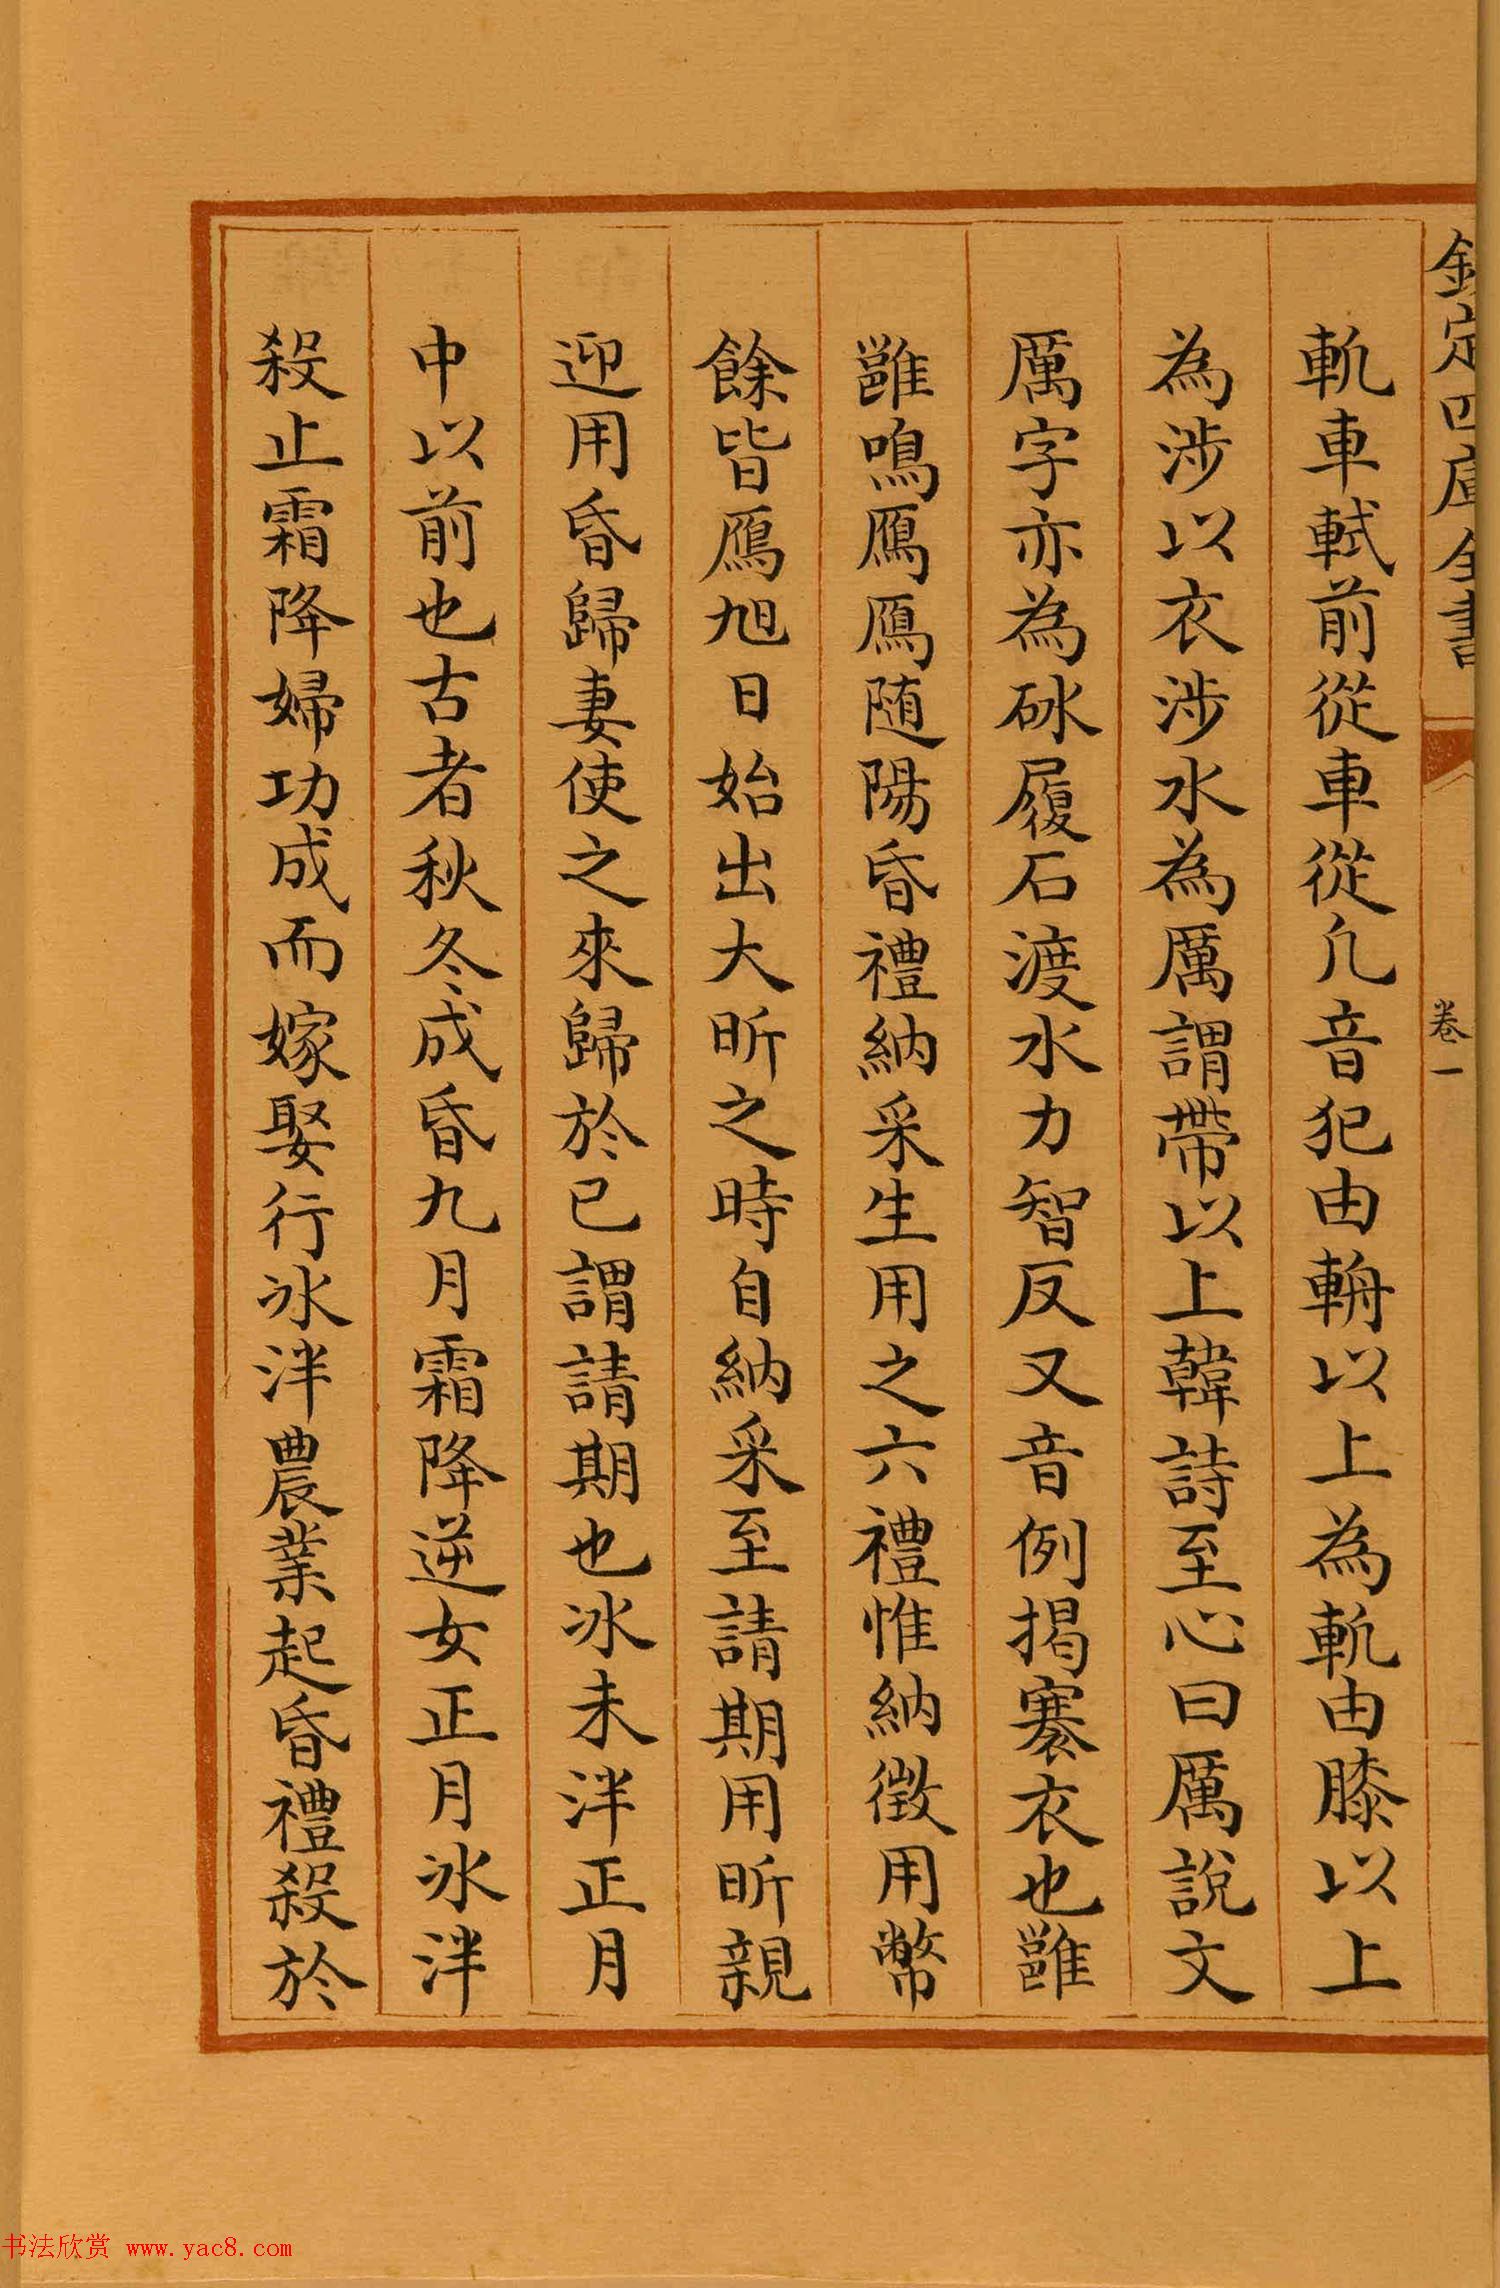 欽定四庫全書
卷一
軓車軾前從車從凢音犯由輈以上為軓由膝以上
為涉以衣涉水為厲謂帶以上韓詩至心曰厲說文
厲字亦為砅履石渡水力智反又音例揭褰衣也雝
雝鳴鴈鴈隨陽昏禮納采生用之六禮惟納徵用幣
餘皆鴈旭日始出大昕之時自納采至請期用昕親
迎用昏歸妻使之來歸於已謂請期也冰未泮正月
中以前也古者秋冬成昏九月霜降逆女正月冰泮
殺止霜降婦功成而嫁娶行冰泮農業起昏禮殺於
书法欣赏 www.yac8.com